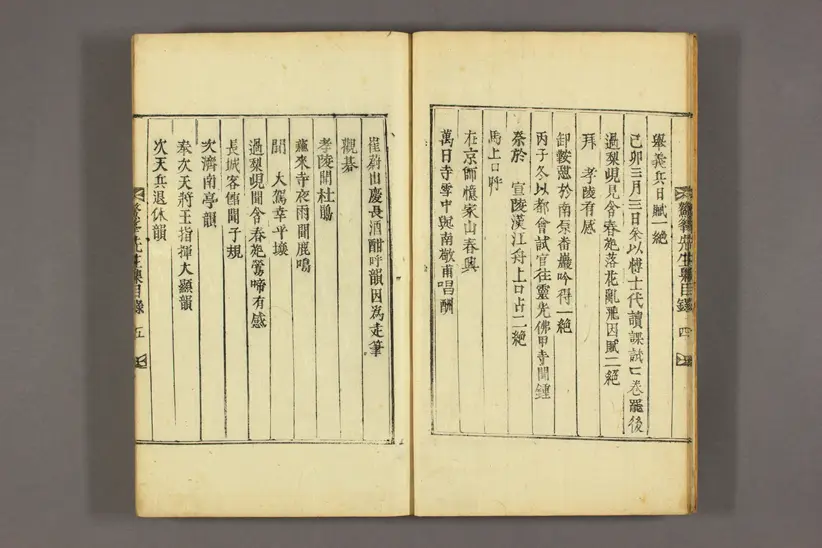 舉義兵日賦一絶
己卯三月三日朱以博士代讀課試口卷罷後
過梨峴見含春苑落花亂飛因賦二絶
拜　孝陵有感
卸鞍憩於南原番巖吟得一絶
丙子冬以都會試官往靈光佛甲寺聞鍾
祭於　宣陵漢江舟上口占二絶
馬上口呼
在京師憶家山春興
萬日寺雪中與南敬甫唱酬
先生集目錄　四
崔蔚山慶長酒酣呼韻因為走筆
觀碁
孝陵聞杜鵑
蘇來寺夜雨聞鹿鳴
聞　大駕幸平壤
過梨峴聞含春苑鶯啼有感
長城客館聞子規
次濟南亭韻
奉次天將王指揮大顯韻
次天兵退休韻
先生集目錄　五